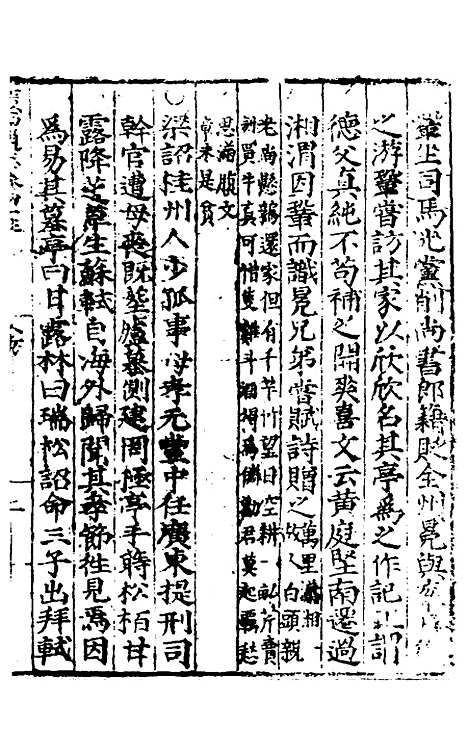 坐司馬光黨削尚書郎籍貶全州晁與
之游鞏嘗訪其家以欣欣名其亭為之作記且謂
德父真純不苟補之開爽喜文云黃庭堅南遷過
湘渭因鞏而識晁兄弟嘗賦詩贈之萬里湘故人白頭親
老尚懸鶉還家但有千竿竹望日空耕一畝斤賣
訓買牛真可惜隻雞斗酒得為鄰勸君莫起愁
思滿腹文章未是貧
○梁詔桂州人少孤事母孝元豐中任廣東提刑司
幹官遭母喪既塋廬墓側建罔極亭手蒔松柏甘
露降芝草生蘇軾自海外歸聞其孝節往見焉因
為易其墓亭曰甘露林曰瑞松詔命三子出拜軾